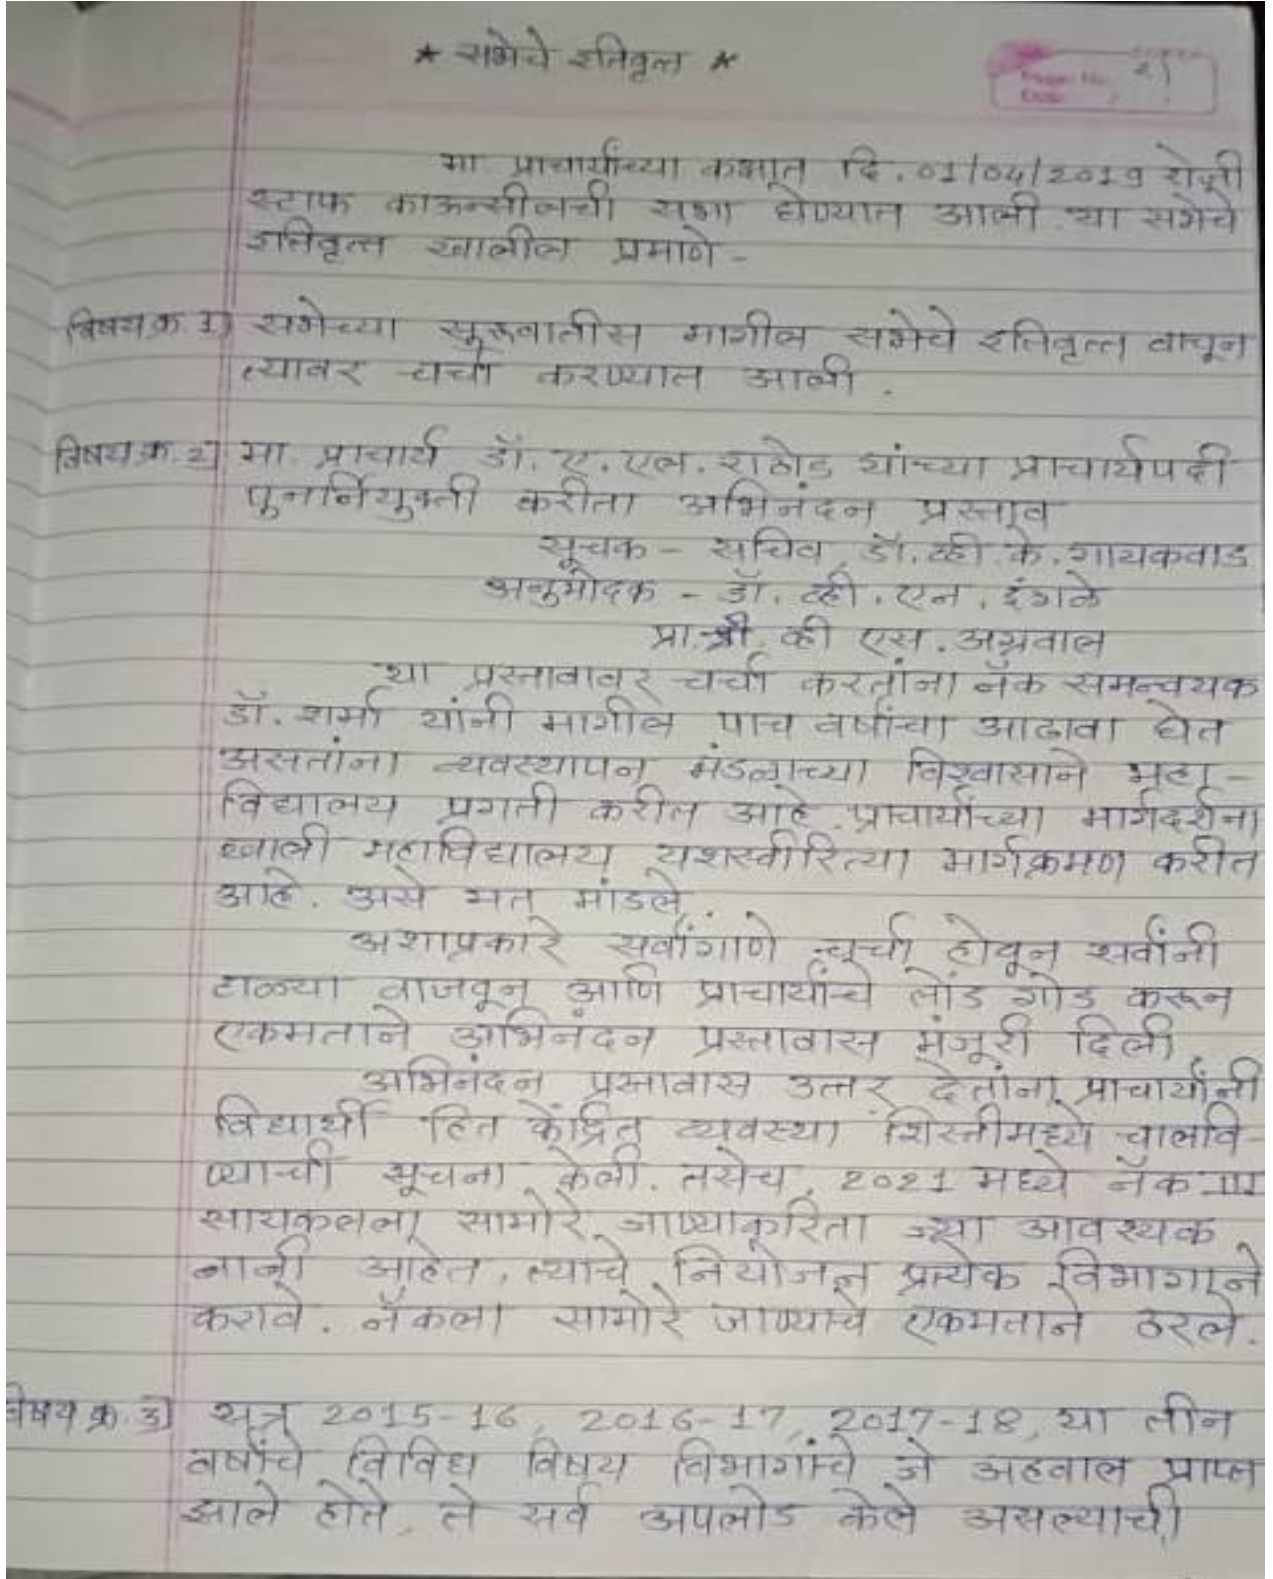 ★ सभेचे इतिवृत्त ★
Page No. २१
Date:
मा प्राचार्यांच्या कक्षात दि. 01/04/2019 रोजी
स्टाफ काऊन्सीलची सभा घेण्यात आली. या सभेचे
इतिवृत्त खालील प्रमाणे -
विषय क्र. 1) सभेच्या सुरूवातीस मागील सभेचे इतिवृत्त वाचून
त्यावर चर्चा करण्यात आली.
विषय क्र. 2) मा. प्राचार्य डॉ. ए. एल. राठोड यांच्या प्राचार्यपदी
पुनर्नियुक्ती करीता अभिनंदन प्रस्ताव
सूचक - सचिव, डॉ. व्ही. के. गायकवाड
अनुमोदक - डॉ. व्ही. एन. इंगळे
प्रा. श्री. व्ही एस. अग्रवाल
या प्रस्तावावर चर्चा करतांना नॅक समन्वयक
डॉ. शर्मा यांनी मागील पाच वर्षांचा आढावा घेत
असतांना व्यवस्थापन मंडळाच्या विश्वासाने महा-
विद्यालय प्रगती करीत आहे. प्राचार्यांच्या मार्गदर्शना
खाली महाविद्यालय यशस्वीरित्या मार्गक्रमण करीत
आहे. असे मत मांडले.
अशाप्रकारे सर्वांगाणे चर्चा होवून सर्वांनी
टाळ्या वाजवून आणि प्राचार्यांचे तोंड गोड करून
एकमताने अभिनंदन प्रस्तावास मंजूरी दिली
अभिनंदन प्रस्तावास उत्तर देतांना, प्राचार्यांनी
विद्यार्थी हित केंद्रित व्यवस्था शिस्तीमध्ये चालवि-
ण्याची सूचना केली. तसेच, 2021 मध्ये नॅक III
सायकलला सामोरे जाण्याकरिता ज्या आवश्यक
बाबी आहेत, त्याचे नियोजन प्रत्येक विभागाने
करावे. नॅकला सामोरे जाण्याचे एकमताने ठरले.
विषय क्र. 3) सत्र 2015-16, 2016-17, 2017-18, या तीन
वर्षांचे विविध विषय विभागांचे जे अहवाल प्राप्त
झाले होते, ते सर्व अपलोड केले असल्याची